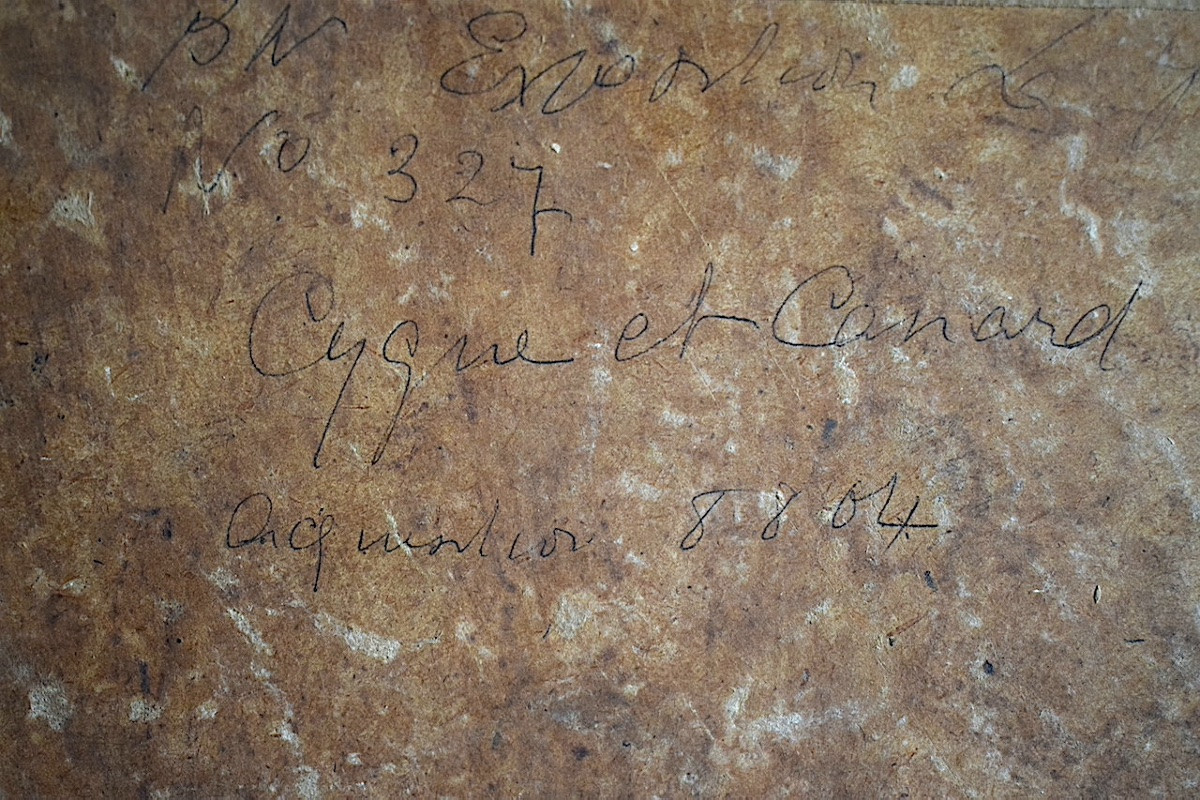 BN Exposition
No 327
Cygne et Canard
Acquisition 8804